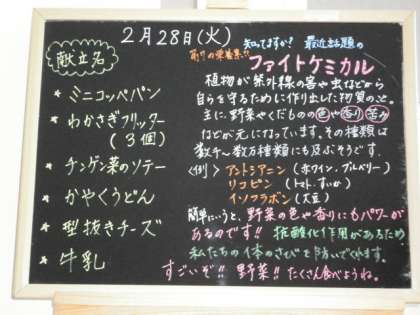 2月28日(火)
献立名
★ ミニコッペパン
★ わかさぎフリッター
(3個)
★ チンゲン菜のソテー
★ かやくうどん
★ 型抜きチーズ
★ 牛乳
知ってますか? 最近話題の
ファイトケミカル
植物が紫外線の害や虫などから
自らを守るために作り出した物質のこと。
主に、野菜やくだものの色や香り苦み
などが元になっています。その種類は
数千〜数万種類にも及ぶそうです。
<例> アントシアニン (赤ワイン、ブルーベリー)
リコピン (トマト、すいか)
イソフラボン (大豆)
簡単にいうと、野菜の色や香りにもパワーが
あるのです!! 抗酸化作用があるため
私たちの体のさびを防いでくれます。
すごいぞ!! 野菜!! たくさん食べようね。